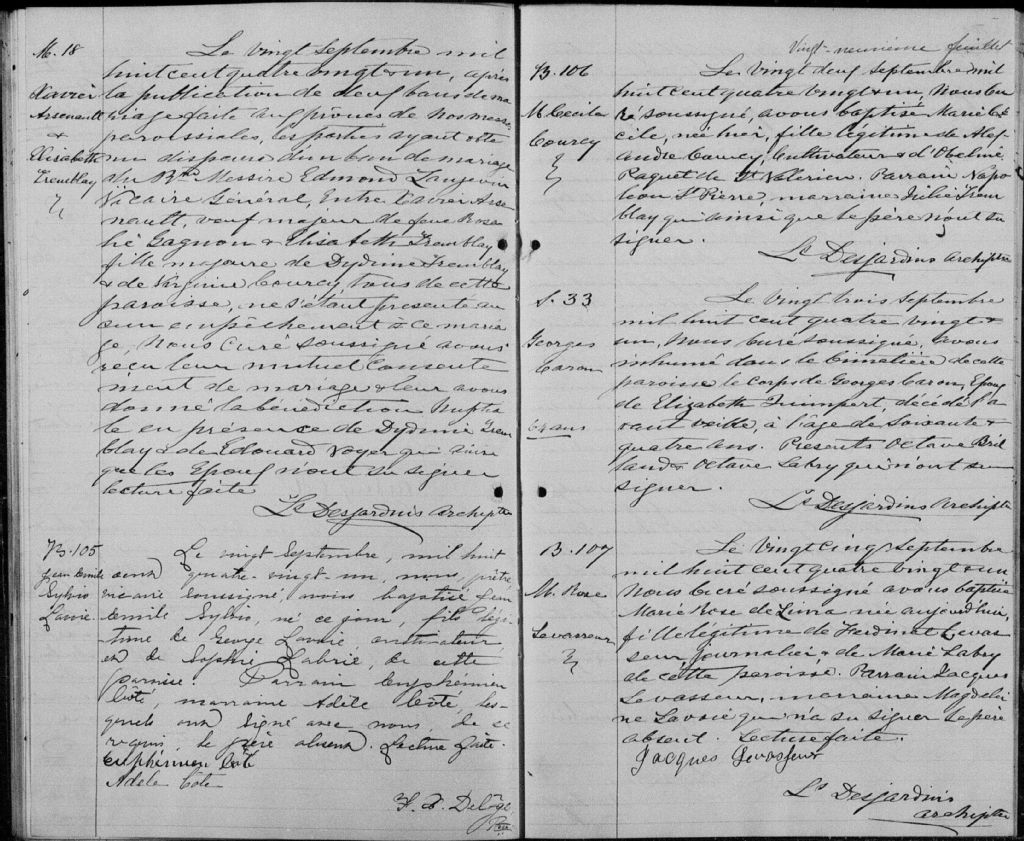 M. 18
Xavier
Arsenault
&
Elisabeth
Tremblay
Le vingt septembre mil
huit cent quatre vingt & un, après
la publication de deux bans de ma
riage faite aux prônes de nos messes
paroissiales, les parties ayant obte
nu dispense d'un ban de mariage
du Messire Edmond Langevin
Vicaire Général, Entre Xavier Arse
nault, veuf majeur de feue Rosa
lie Gagnon & Elisabeth Tremblay
fille majeure de Dydime Tremblay
& de Virginie Courcy, tous de cette
paroisse, ne s'étant présenté au
cun empêchement à ce maria
ge, Nous Curé soussigné avons
reçu leur mutuel consente
ment de mariage & leur avons
donné la bénédiction nuptia
le en présence de Dydime Trem
blay & de Edouard Voyer qui ainsi
que les Epoux n'ont su signer
lecture faite
Ls Desjardins Archiptre
B. 105
Jean Emile
Sylvio
Lavoie
Le vingt Septembre, mil huit
cent quatre-vingt-un, nous, prêtre
vicaire soussigné, avons baptisé Jean
Emile Sylvio, né ce jour, fils légi-
time de George Lavoie cultivateur
et de Sophie Labrie, de cette
paroisse. Parrain Euphémien
Côté, marraine Adèle Côté, les-
quels ont signé avec nous, de ce
requis, le père absent. Lecture faite.
Euphémien Côté
Adèle Côté
Ptre
Vingt-neuvième feuillet
B. 106
M. Cecile
Courcy
Le vingt deux septembre mil
huit cent quatre vingt & un, Nous Cu
ré soussigné, avons baptisé Marie Cé
cile, née hier, fille légitime de Alex
andre Courcy, Cultivateur & d'Obeline
Paquet de St Valerien. Parrain Napo
léon St Pierre, marraine Julie Trem
blay qui ainsi que le père n'ont su
signer.
Ls Desjardins Archiptre
S. 33
Georges
Caron
64 ans
Le vingt trois septembre
mil huit cent quatre vingt &
un, Nous Curé soussigné, avons
inhumé dans le Cimetière de cette
paroisse le corps de Georges Caron, Epoux
de Elizabeth Quimpert, décédé l'a
vant veille, à l'âge de soixante &
quatre ans. Présents Octave Bril
land & Octave Labry qui n'ont su
signer.
Ls Desjardins Archiptre
B. 107
M. Rose
Levasseur
Le vingt cinq septembre
mil huit cent quatre vingt & un
Nous Curé soussigné avons baptisé
Marie Rose de Lima née aujourd'hui,
fille légitime de Ferdinat Levas
seur, journalier & de Marie Labry
de cette paroisse. Parrain Jacques
Levasseur, marraine Magdelei
ne Lavoie qui n'a su signer le père
absent. Lecture faite.
Jacques Levasseur
Ls Desjardins
archiptre